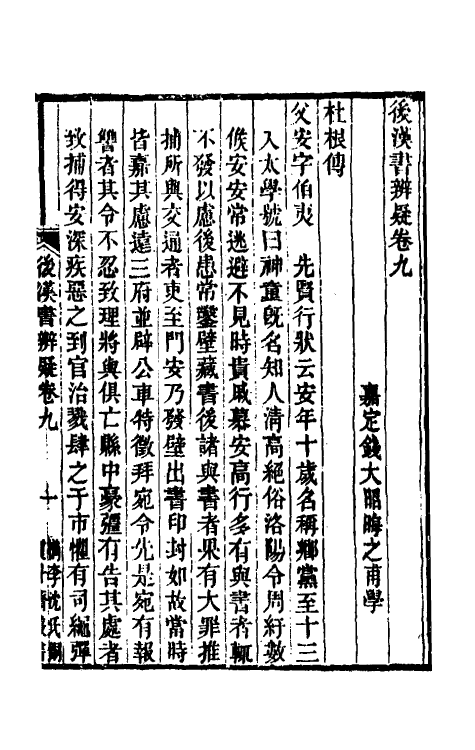 後漢書辨疑卷九
嘉定錢大昭晦之甫學
杜根傳
父安字伯夷　先賢行狀云安年十歲名稱鄉黨至十三
入太學號曰神童旣名知人清高絕俗洛陽令周紆數
候安安常逃避不見時貴戚慕安高行多有與書者輒
不發以慮後患常鑿壁藏書後諸與書者果有大罪推
捕所與交通者吏至門安乃發壁出書印封如故當時
皆嘉其慮遠三府並辟公車特徵拜宛令先是宛有報
讐者其令不忍致理將與俱亡縣中豪彊有告其處者
致捕得安深疾惡之到官治戮肆之于市懼有司繩彈
後漢書辨疑卷九　十